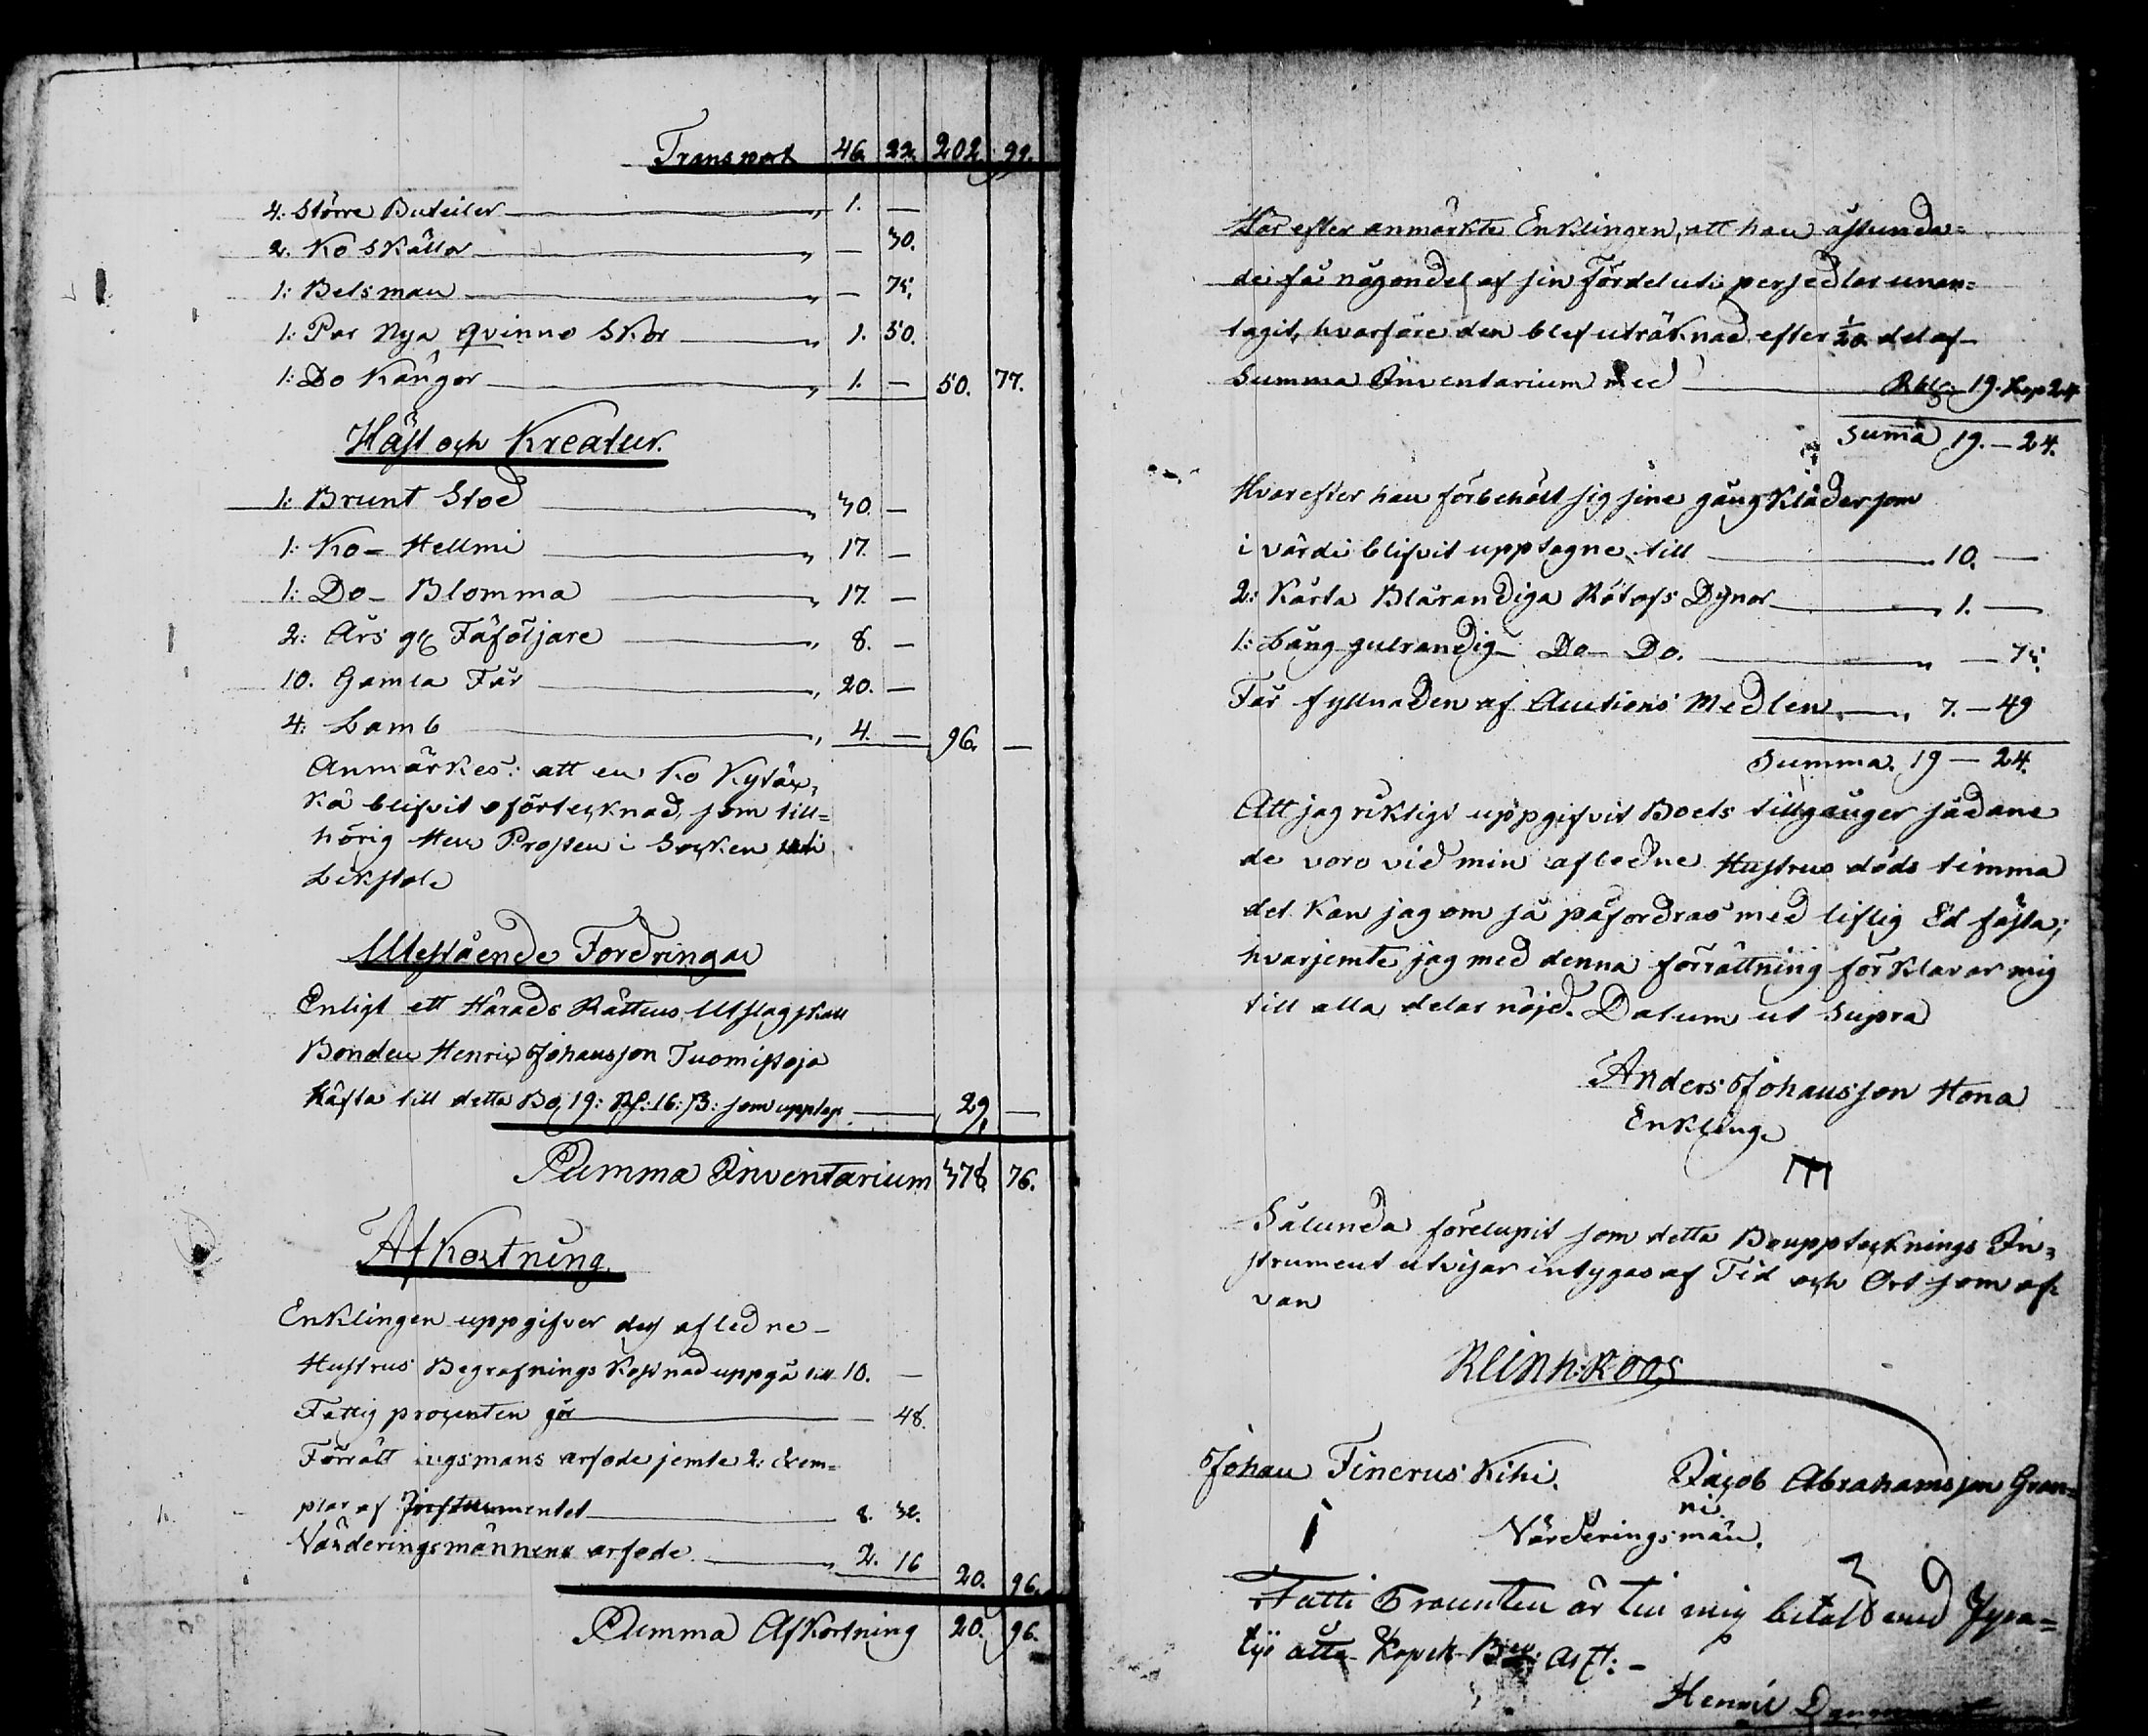 Transport 46. 22. 202. 99.
4: Större Buteiler „ 1. —
2. Ko Skällor „ — 30.
1: Betsman „ — 75.
1: Par Nya qvinno Skor „ 1. 50.
1: Do Kängor „ 1. — 50. 77.
Häst och Kreatur.
1: Brunt Stod „ 30. —
1: Ko - Hellmi „ 17. —
1: Do - Blomma „ 17. —
2: Års gl Fåföljare „ 8. —
10. Gamla Får „ 20. —
4: Lamb „ 4. — 96. —
Anmärkes: att en Ko Kytäc,
ka blifvit oförtecknad, som till=
hörig Herr Prosten i Socken
Utestående Fordringar
Enligt ett Härads Rättens Utslag skall
Bonden Henric Johansson Tuomisoja
häfta till detta Bo, 19: Rd: 16: ß: som upptages 29. —
Summa Inventarium 378. 76.
Afkortning.
Enklingen uppgifver des afledne
Hustrus Begrafnings Kostnad uppgå till 10. —
Fattig procenten gör — 48.
Förrättningsmans arfode jemte 2: Exem=
plar af Instrumentet 8. 32.
Värderingsmännens arfode „ 2. 16 20. 96.
Summa Afkortning 20. 96.
Här efter anmärkte Enklingen, att han åstunda=
de få någondel af sin Fördel uti persedlar unan=
tagit, hvarföre den blef uträknad efter 1/20 del af
Summa Inventarium med Rbl: 19. Kop 24
Summa 19. — 24.
Hvarefter han förbehölt sig sine gångkläder som
i värde blifvit upptagne till 10. —
2: Korta Blårandiga Rötofs Dynor „ 1. —
1: Lång gulrandig Do Do. „ — 75.
Får fyllnaden af Auctions Medlen „ 7. — 49
Summa. 19 — 24.
Att jag riktigt uppgifvit Boets tillgånger sådane
de voro vid min afledne Hustrus döds timma
det kan jag om så påfordras med liflig Ed fästa;
hvarjemte jag med denna förrättning förklarar mig
till alla delar nöjd. Datum ut Supra
Anders Johansson Hona
Enkling.
Sålunda förelupit som detta Bouppteknings In=
strument utvisar intygas af Tid och Ort som of=
van
Reinh: Roos
Johan Finerus Kihi. Jacob Abrahamsson Gran=
ni.
Värderingsmän.
Fatti Procenten är till mig betald med fyra=
tijo åtta Kopek
Henric